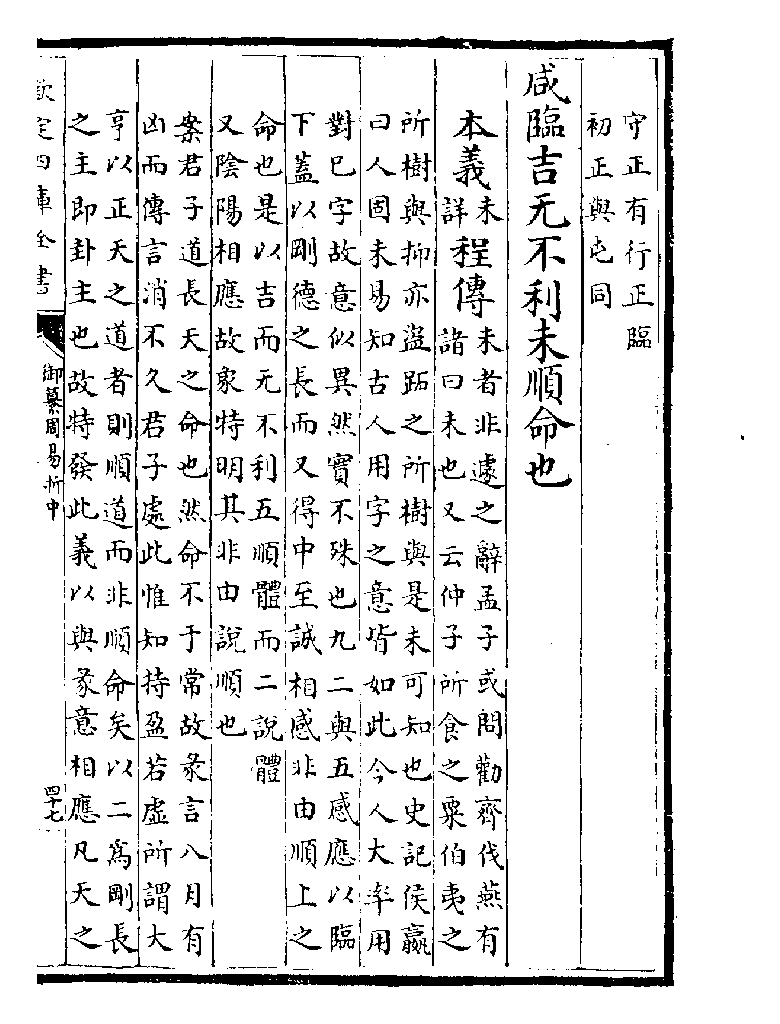 守正有行正臨
初正與屯同
咸臨吉无不利未順命也
本義未詳程傳未者非遽之辭孟子或問勸齊伐燕有
諸曰未也又云仲子所食之粟伯夷之
所樹與抑亦盜跖之所樹與是未可知也史記侯嬴
曰人固未易知古人用字之意皆如此今人大率用
對已字故意似異然實不殊也九二與五感應以臨
下蓋以剛德之長而又得中至誠相感非由順上之
命也是以吉而无不利五順體而二說體
又陰陽相應故象特明其非由說順也
案君子道長天之命也然命不于常故彖言八月有
凶而傳言消不久君子處此惟知持盈若虛所謂大
亨以正天之道者則順道而非順命矣以二為剛長
之主即卦主也故特發此義以與彖意相應凡天之
欽定四庫全書
御纂周易折中
四十七